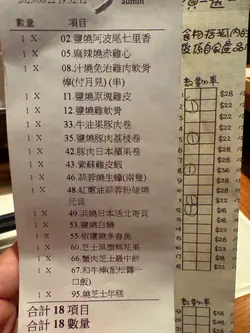 admin
數量 項目
1 X 02.鹽燒阿波尾七里香
1 X 05.麻辣燒赤雞心
1 X 08.汁燒免治雞軟骨
棒(付月見) (串)
1 X 11.鹽燒原塊雞皮
1 X 12.鹽燒雞軟骨
1 X 33.牛油果豚肉卷
1 X 35.鹽燒豚肉荔枝卷
1 X 42.豚肉日本蘋果卷
1 X 43.紫蘇雞皮蝦
1 X 46.蒜蓉燒生蠔(兩隻)
1 X 48.紅蔥油蒜蓉粉絲燒
元貝
1 X 49.浜燒日本活北寄貝
1 X 53.鹽燒白鱔
1 X 55.椒鹽燒多春魚
1 X 60.芝士風鈴熊茄紙
1 X 66.蟹肉芝士最中餅
1 X 67.和牛棒(配松露一
口飯)
1 X 95.燒芝士年糕
合計 18 項目
合計 18 數量
數量加單
$28
$22
$28
$22
$28
$28
$22
$22
$28
$22
$28
$22
$22
$22